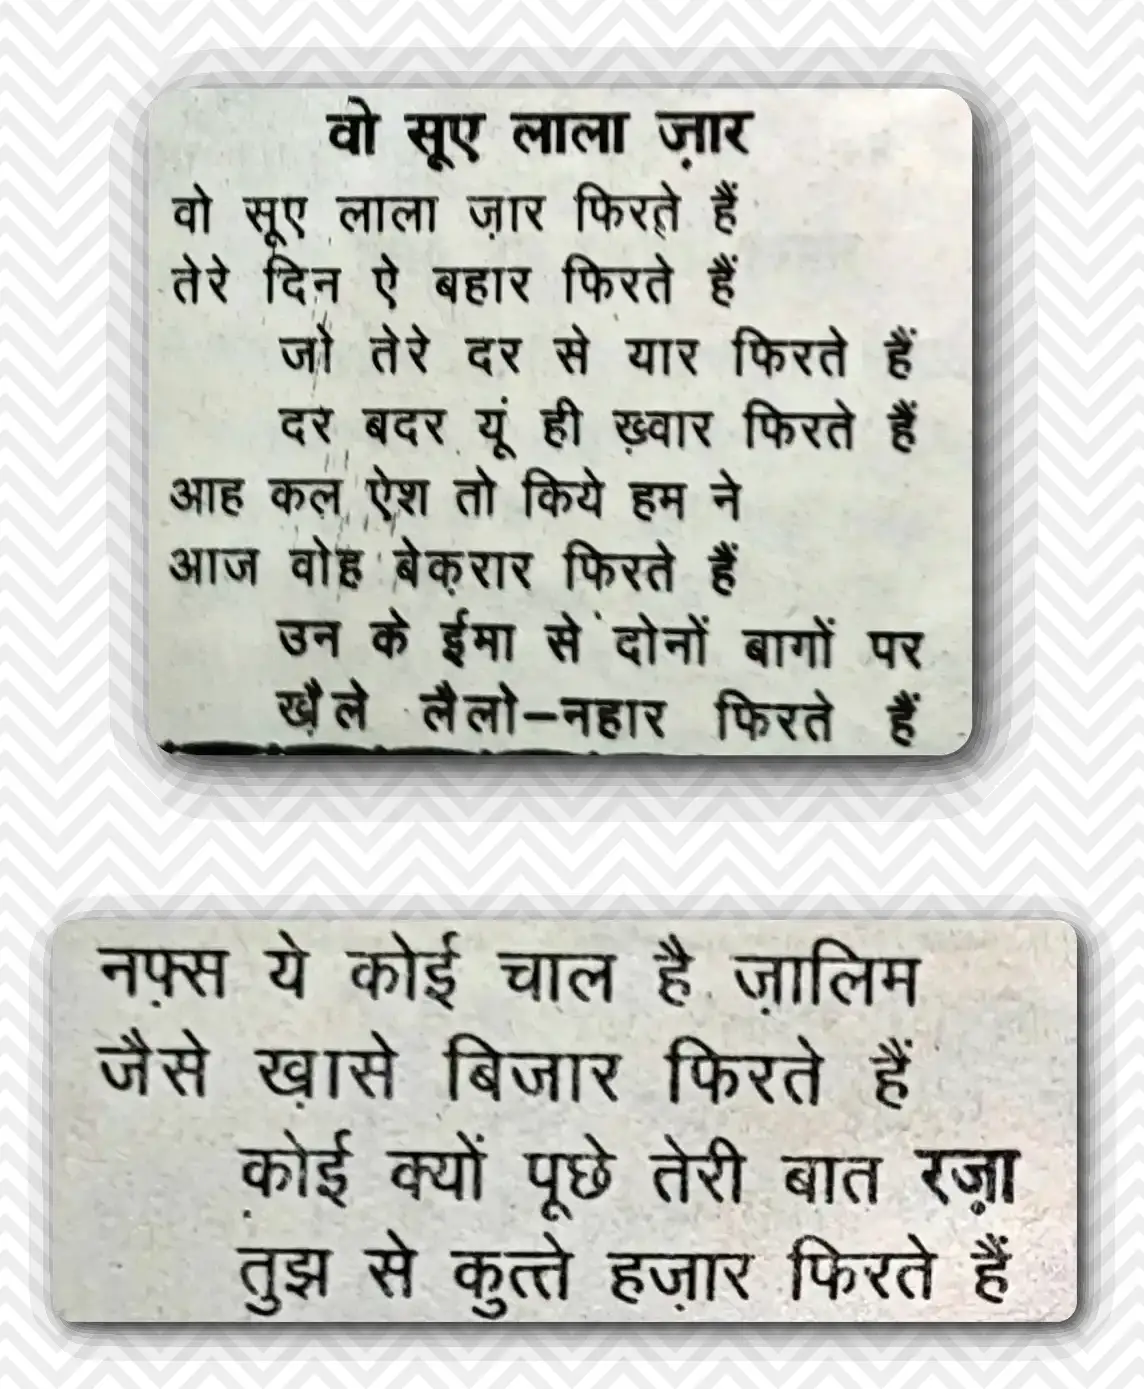 वो सूए लाला ज़ार
वो सूए लाला ज़ार फिरते हैं
तेरे दिन ऐ बहार फिरते हैं
जो तेरे दर से यार फिरते हैं
दर बदर यूं ही ख़्वार फिरते हैं
आह कल ऐश तो किये हम ने
आज वोह बेक़रार फिरते हैं
उन के ईमा से दोनों बागों पर
ख़ैले लैलो–नहार फिरते हैं
नफ़्स ये कोई चाल है ज़ालिम
जैसे ख़ासे बिजार फिरते हैं
कोई क्यों पूछे तेरी बात रज़ा
तुझ से कुत्ते हज़ार फिरते हैं